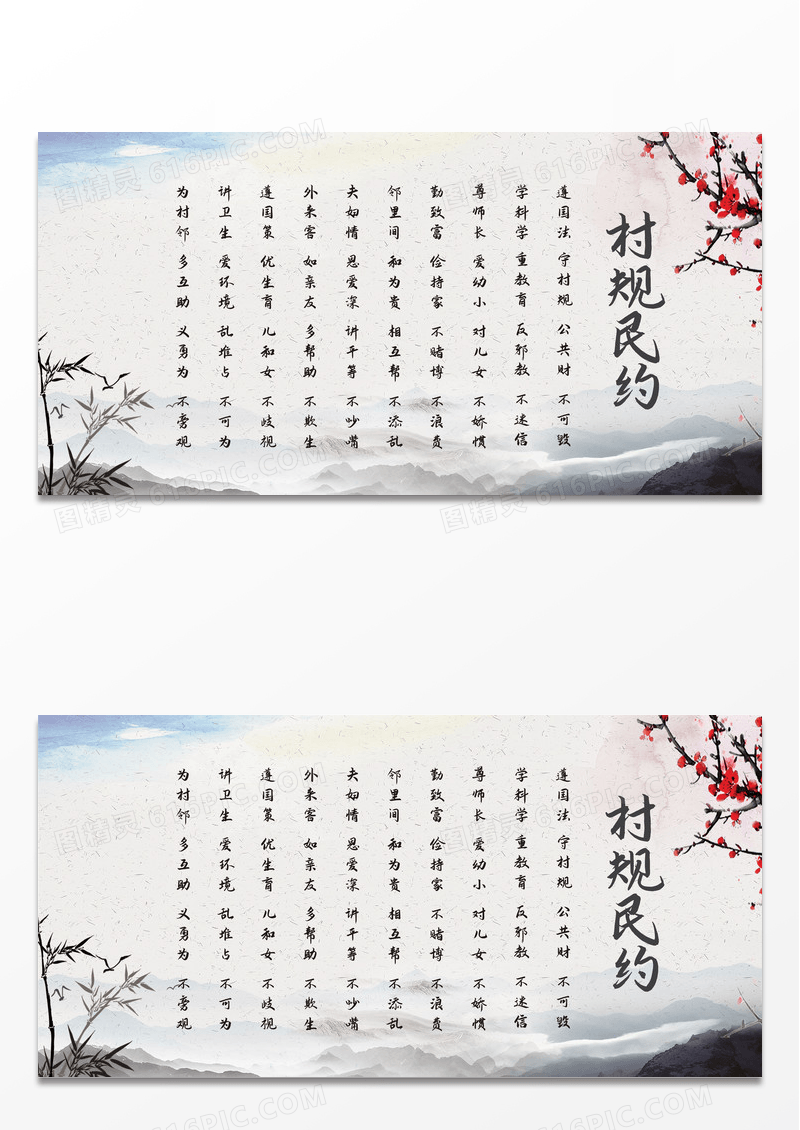 村规民约
遵国法 守村规 公共财 不可毁
学科学 重教育 反邪教 不迷信
尊师长 爱幼小 对儿女 不娇惯
勤致富 俭持家 不赌博 不浪费
邻里间 和为贵 相互帮 不添乱
夫妇情 恩爱深 讲平等 不吵嘴
外来客 如亲友 多帮助 不欺生
遵国策 优生育 儿和女 不歧视
讲卫生 爱环境 乱堆占 不可为
为村邻 多互助 义勇为 不旁观
村规民约
遵国法 守村规 公共财 不可毁
学科学 重教育 反邪教 不迷信
尊师长 爱幼小 对儿女 不娇惯
勤致富 俭持家 不赌博 不浪费
邻里间 和为贵 相互帮 不添乱
夫妇情 恩爱深 讲平等 不吵嘴
外来客 如亲友 多帮助 不欺生
遵国策 优生育 儿和女 不歧视
讲卫生 爱环境 乱堆占 不可为
为村邻 多互助 义勇为 不旁观
图精灵 616PIC.COM